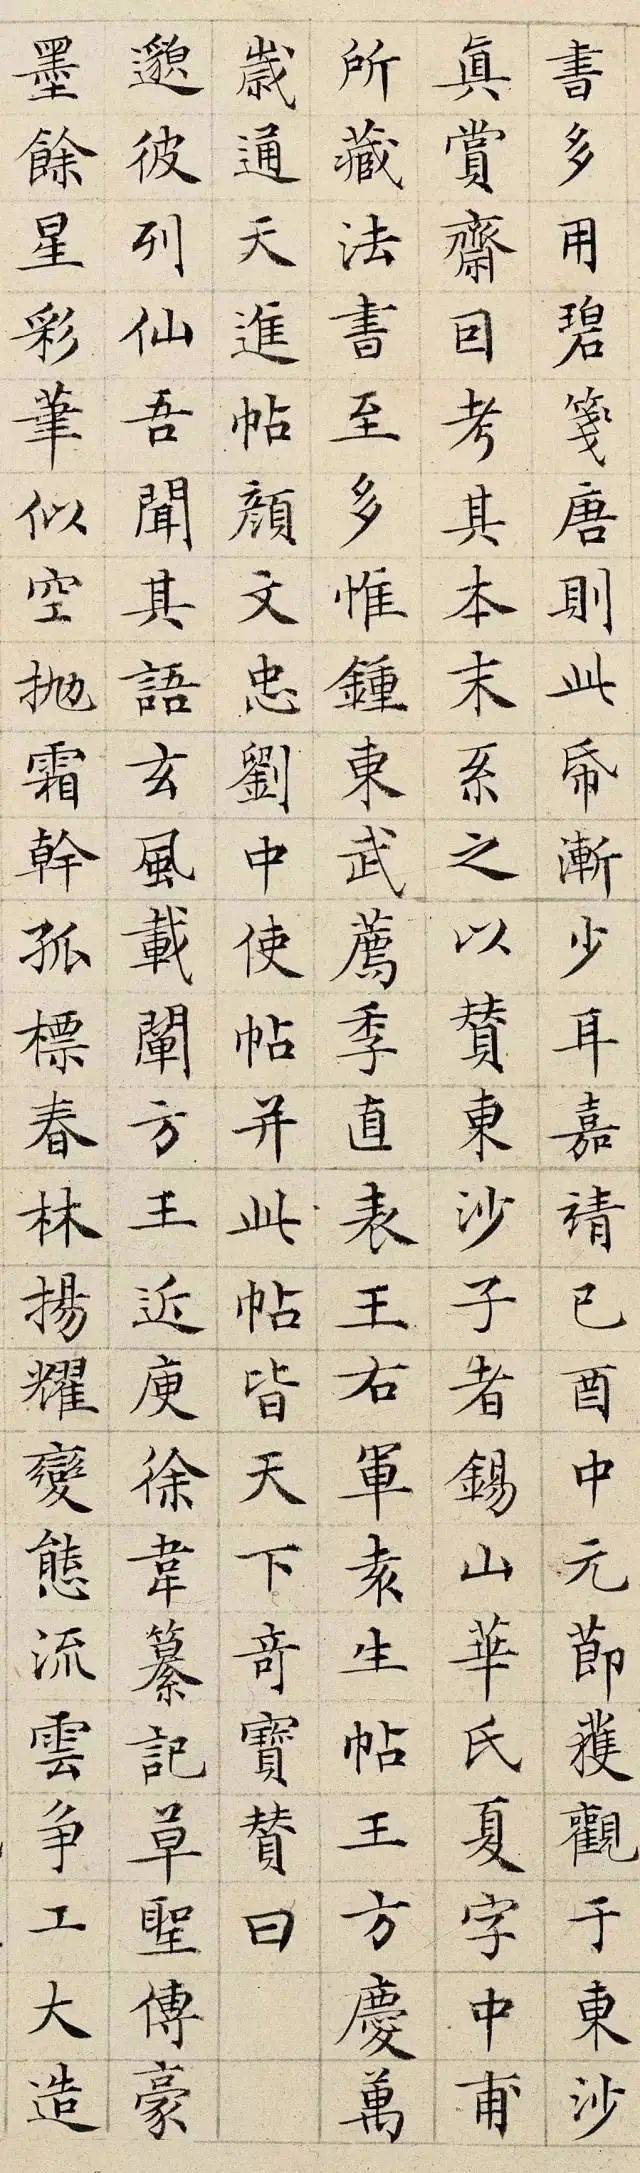 書多用碧箋唐則此帋漸少耳嘉靖己酉中元節獲觀于東沙
真賞齋因考其本末系之以賛東沙子者錫山華氏夏字中甫
所藏法書至多惟鍾東武薦季直表王右軍袁生帖王方慶萬
歲通天進帖顏文忠劉中使帖并此帖皆天下奇寶賛曰
邈彼列仙吾聞其語玄風載闡方王近庾徐韋纂記草聖傳豪
墨餘星彩筆似空拋霜幹孤標春林揚耀變態流雲爭工大造